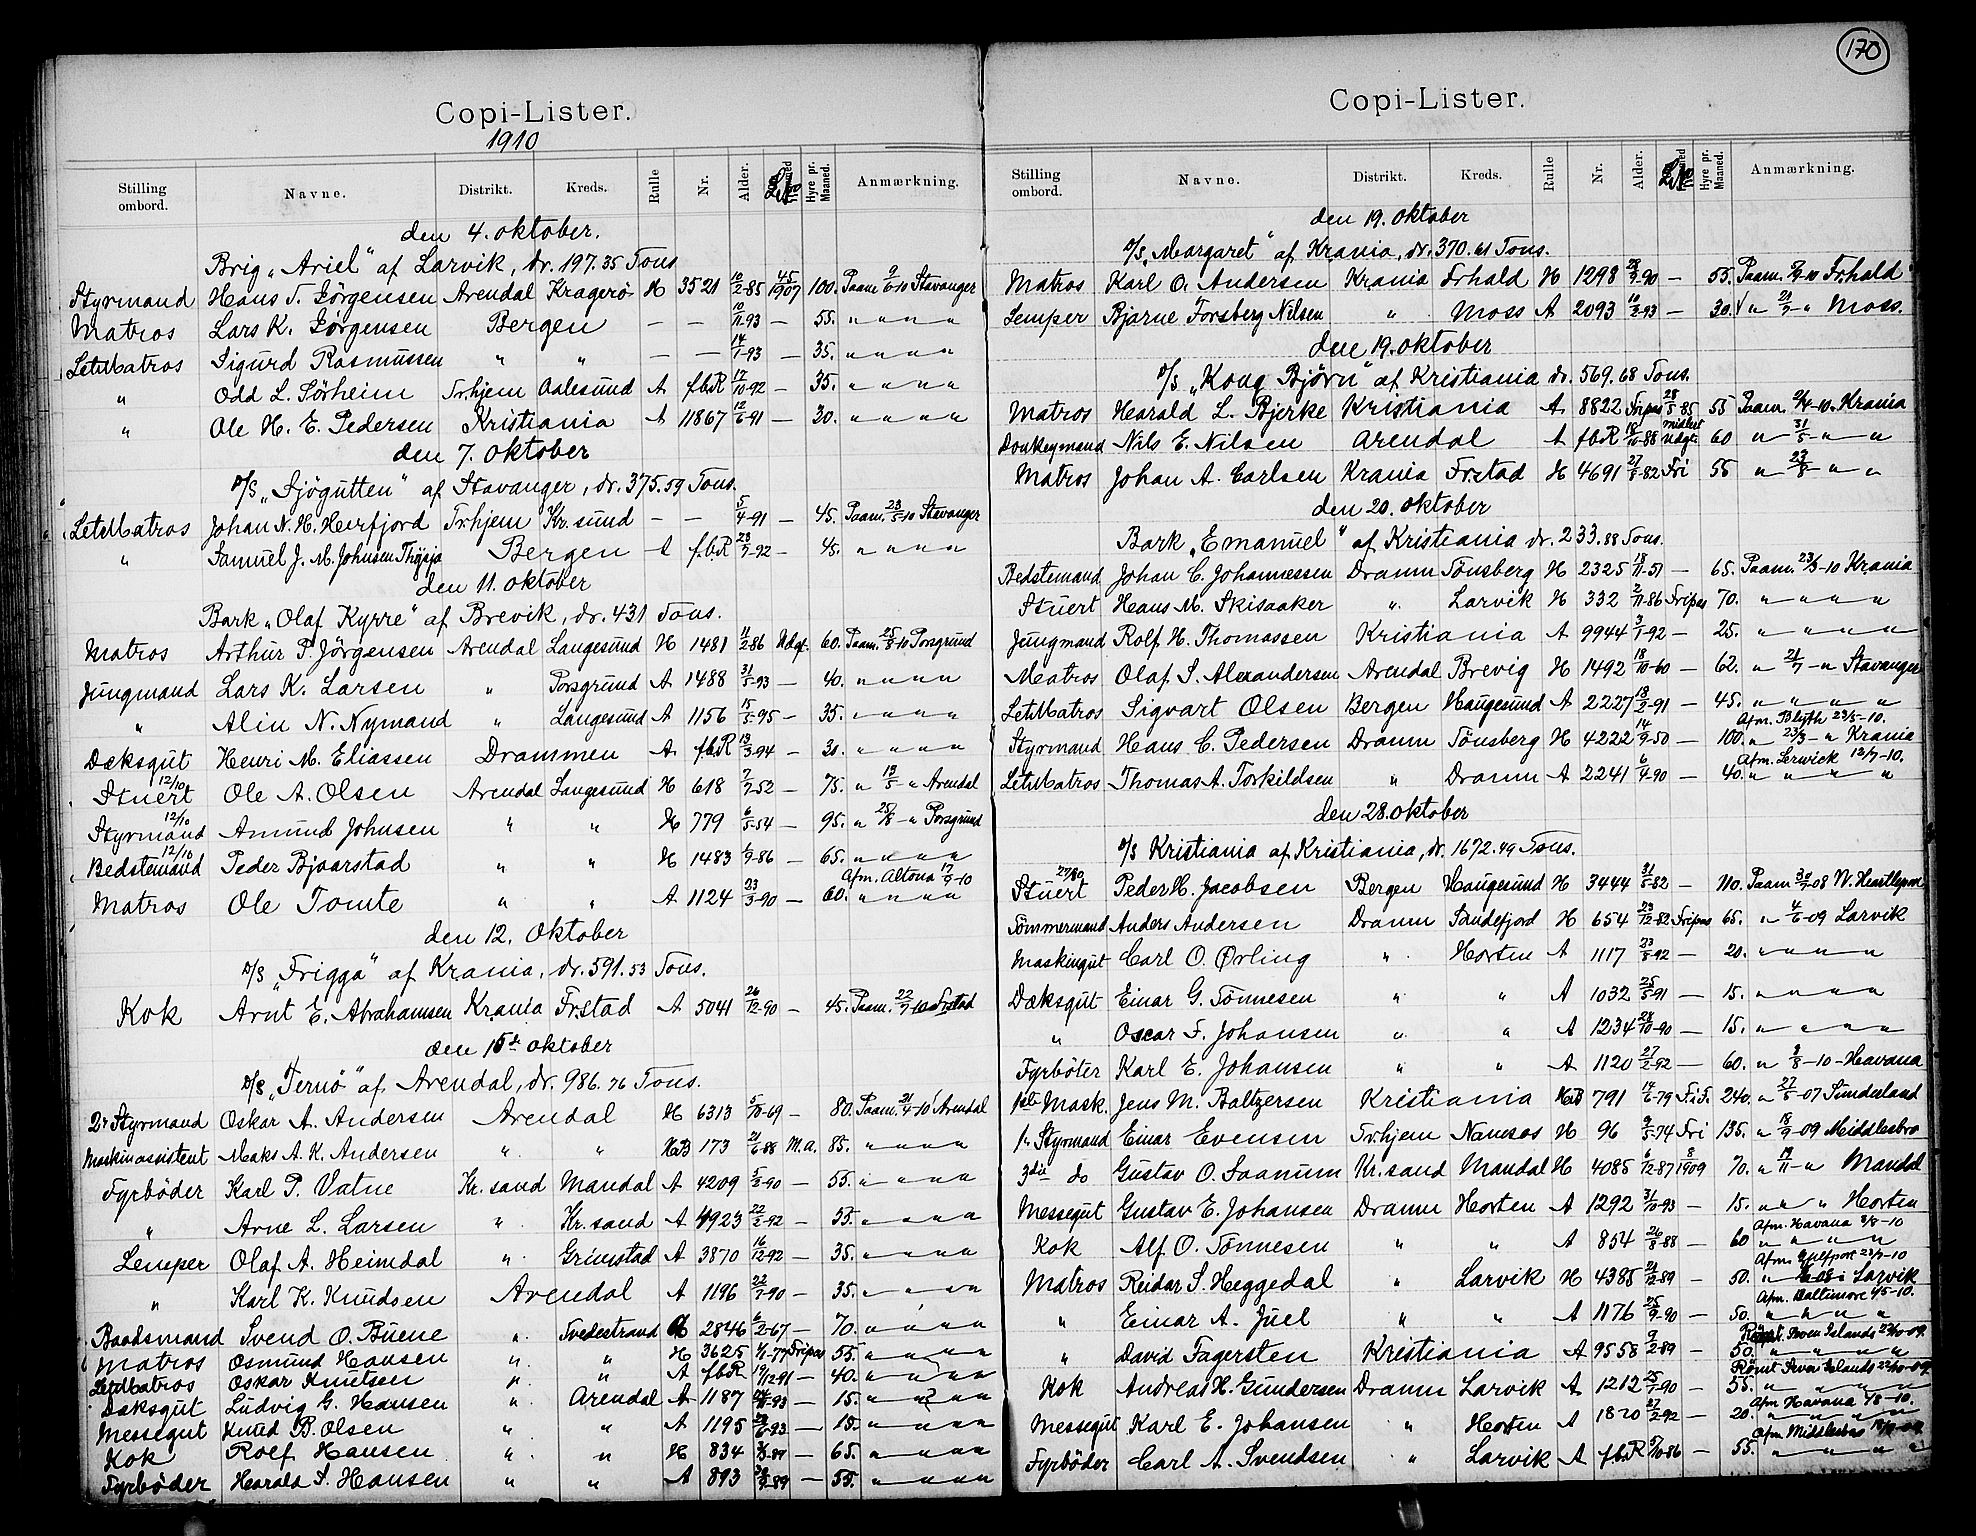 170
Copi-Lister.
1910
Stilling ombord. Navne. Distrikt. Kreds. Rulle Nr. Alder. Hyre pr. Maaned. Anmærkning.
den 4. oktober.
Brig „Ariel" af Larvik, dr. 197.35 Tons
Styrmand Hans T. Görgensen Arendal Kragerö H 3521 10/2-85 45/1907 100. Paam 9/6-10 Stavanger
Matros Lars K. Görgensen Bergen — — 10/11-93 — 55. " " " "
LetMatros Sigurd Rasmussen " " — — 14/1-93 — 35. " " " "
" Odd L. Sörheim Tr.hjem Aalesund A fbR 17/10-92 — 35. " " " "
" Ole H. E. Pedersen Kristiania A 11867 12/6-91 — 30. " " " "
den 7. oktober
D/S „Sjögutten" af Stavanger, dr. 375.59 Tons.
LetMatros Johan N. H. Herrfjord Tr.hjem Kr.sund — — 5/4-91 — 45. Paam. 23/5-10 Stavanger
" Samuel J. M. Johnsen Bergen A f.b.R 28/7-92 — 45. " " " "
den 11. oktober
Bark „Olaf Kyrre" af Brevik, dr. 431 Tons.
Matros Arthur P. Jörgensen Arendal Langesund H 1481 11/2-86 Udgt. 60. Paam. 25/8-10 Porsgrund
Jungmand Lars K. Larsen " Porsgrund A 1488 31/5-93 — 40. " " " "
" Alin N. Nymand " Langesund A 1156 15/5-95 — 35. " " " "
Dæksgut Henri M. Eliassen Drammen A fbR 13/3-94 — 30. " " " "
12/10
Stuert Ole A. Olsen Arendal Langesund H 618 7/7-52 — 75. " 13/5 " Arendal
12/10
Styrmand Amund Johnsen " " H 779 6/5-54 — 95. " 25/8 - " Porsgrund
12/10
Bedstemand Peder Bjaarstad " " H 1483 1/9-86 — 65. " " " "
Afm. Altona 17/9-10
Matros Ole Tomte " " A 1124 23/3-90 — 60. " " " "
den 12. Oktober
D/S „Frigga" af Krania, dr. 591.53 Tons.
Kok Arnt E. Abrahamsen Krania Fr.stad A 5041 26/12-90 — 45. Paam. 22/7-10 Frstad
den 15de oktober
D/S „Ternö" af Arendal, dr. 986.76 Tons.
2r Styrmand Oskar A. Andersen Arendal H 6313 5/10-69 — 80. Paam. 21/4-10 Arendal
Maskinassistent Maks A. K. Andersen " " HB 173 21/6-88 M.a. 85. " " " "
Fyrböder Karl P. Vatne Kr.sand Mandal A 4209 5/2-90 — 55. " " " "
" Arne L. Larsen " Kr.sand A 4923 22/2-92 — 55. " " " "
Lemper Olaf A. Heimdal " Grimstad A 3870 16/12-92 — 35. " " " "
" Karl K. Knudsen Arendal A 1196 22/7-90 — 35. " " " "
Baadsmand Svend O. Buene " Tvedestrand 2846 6/2-67 — 70. " " " "
Matros Osmund Hansen " " H 3625 1/1-77 Fripas 55. " " " "
LetMatros Oskar Knutsen " " A fbR 19/12-91 — 40. " " " "
Dæksgut Ludvig G. Hansen " Arendal A 1187 — 15. " " " "
Messegut Knud B. Olsen " " A 1195 — 15. " " " "
Kok Rolf Hansen " " H 834 — 65. " " " "
Fyrböder Harald S. Hansen " " A 893 — 55. " " " "
Copi-Lister.
Stilling ombord. Navne. Distrikt. Kreds. Rulle Nr. Alder. Hyre pr. Maaned. Anmærkning.
den 19. oktober
D/S „Margaret" af Krania, dr. 370.61 Tons.
Matros Karl O. Andersen Krania Frhald H 1298 -90 — 55. Paam. Frhald
Lemper Bjarne Forsberg Nilsen " Moss A 2093 10/3-93 — 30. " 21/7 - " Moss.
den 19. oktober
D/S „Kong Björn" af Kristiania dr. 569.68 Tons.
Matros Harald L. Bjerke Kristiania A 8822 Fripas 28/5-85 55 Paam. 2/4-10. Krania
Donkeymand Nils E. Nilsen Arendal A fbR 18/10-88 mistet Udgt. 60 " 31/5 - " "
Matros Johan A. Carlsen Krania Frstad H 4691 27/8-82 Fri 55 " 23/8 - " "
den 20. oktober
Bark „Emanuel" af Kristiania dr. 233.88 Tons.
Bedstemand Johan C. Johannessen Dramn Tönsberg H 2325 18/11-51 — 65. Paam. 23/3-10 Krania
Stuert Hans M. Skisaaker " Larvik H 332 2/11-86 Fripas 70. " " " "
Jungmand Rolf H. Thomassen Kristiania A 9944 3/1-92 — 25. " " " "
Matros Olaf S. Alexandersen Arendal Brevig H 1492 18/10-60 — 62. " 21/7 - " Stavanger
LetMatros Sigvart Olsen Bergen Haugesund A 2227 13/2-91 — 45. " " " "
Afm. Blyth 23/5-10.
Styrmand Hans C. Pedersen Dramn Tönsberg H 4222 14/9-50 — 100. " 23/3 - " Krania
Afm. Lerwick 12/7-10.
LetMatros Thomas A. Torkildsen " Dramn A 2241 6/4-90 — 40. " " " "
den 28. oktober
D/S Kristiania af Kristiania, dr. 1672.49 Tons.
Stuert Peder H. Jacobsen Bergen Haugesund H 3444 31/5-82 — 110. Paam 30/7-08 W. Heartlepool
Tömmermand Anders Andersen Dramn Sandefjord H 654 23/12-82 Fripas 65. " 4/6-09 Larvik
Maskingut Carl O. Ørling " Horten A 1117 23/8-92 — 20. " " " "
Dæksgut Einar G. Tönnesen " " A 1032 25/5-91 — 15. " " " "
" Oscar F. Johansen " " A 1234 28/10-90 — 15. " " " "
Fyrböter Karl E. Johansen " " A 1120 27/2-92 — 60. " 8/8-10 - Havana
1ste Mask. Jens M. Baltzersen Kristiania HB 791 14/6-79 Fri. 240. " 27/5-07 Sunderland
1r Styrmand Einar Evensen Tr.hjem Namsos H 96 9/5-74 Fri 135. " 18/9-09 Middlesbro
3die do Gustav O. Saanum Kr.sand Mandal H 4085 6/12-87 8/1909 70. " 19/11 - " Mandal
Messegut Gustav E. Johansen Dramn Horten A 1292 31/10-93 — 15. " " " Horten
Afm. Havana 8/8-10
Kok Alf O. Tönnesen " " A 854 26/8-88 — 60 " " " "
Afm. Gulfport 23/9-10
Matros Reidar S. Heggedal " Larvik H 4385 21/12-89 — 50. " Larvik
Afm. Baltimore 4/5-10.
" Einar A. Juel " " A 1176 25/9-90 — 50. " " " "
Römt. Seven Islands 22/10-09.
" David Fagersten Kristiania A 9558 9/2-89 — 50. " " " "
Römt Seven Islands 22/10-09.
Kok Andreas H. Gundersen Dramn Larvik A 1212 25/7-90 — 55. " " " "
Afm Havana 8/8-10.
Messegut Karl E. Johansen " Horten A 1820 27/2-92 — 20. " " " "
Afm Middlesbro
Fyrböder Carl A. Svendsen " Larvik A fbR 5/10-86 — 55. " " " "